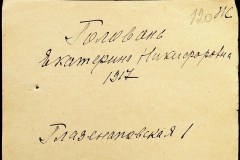 120 Ж
Головань
Екатерине Никифоровна
1917
Глазенаповская 1